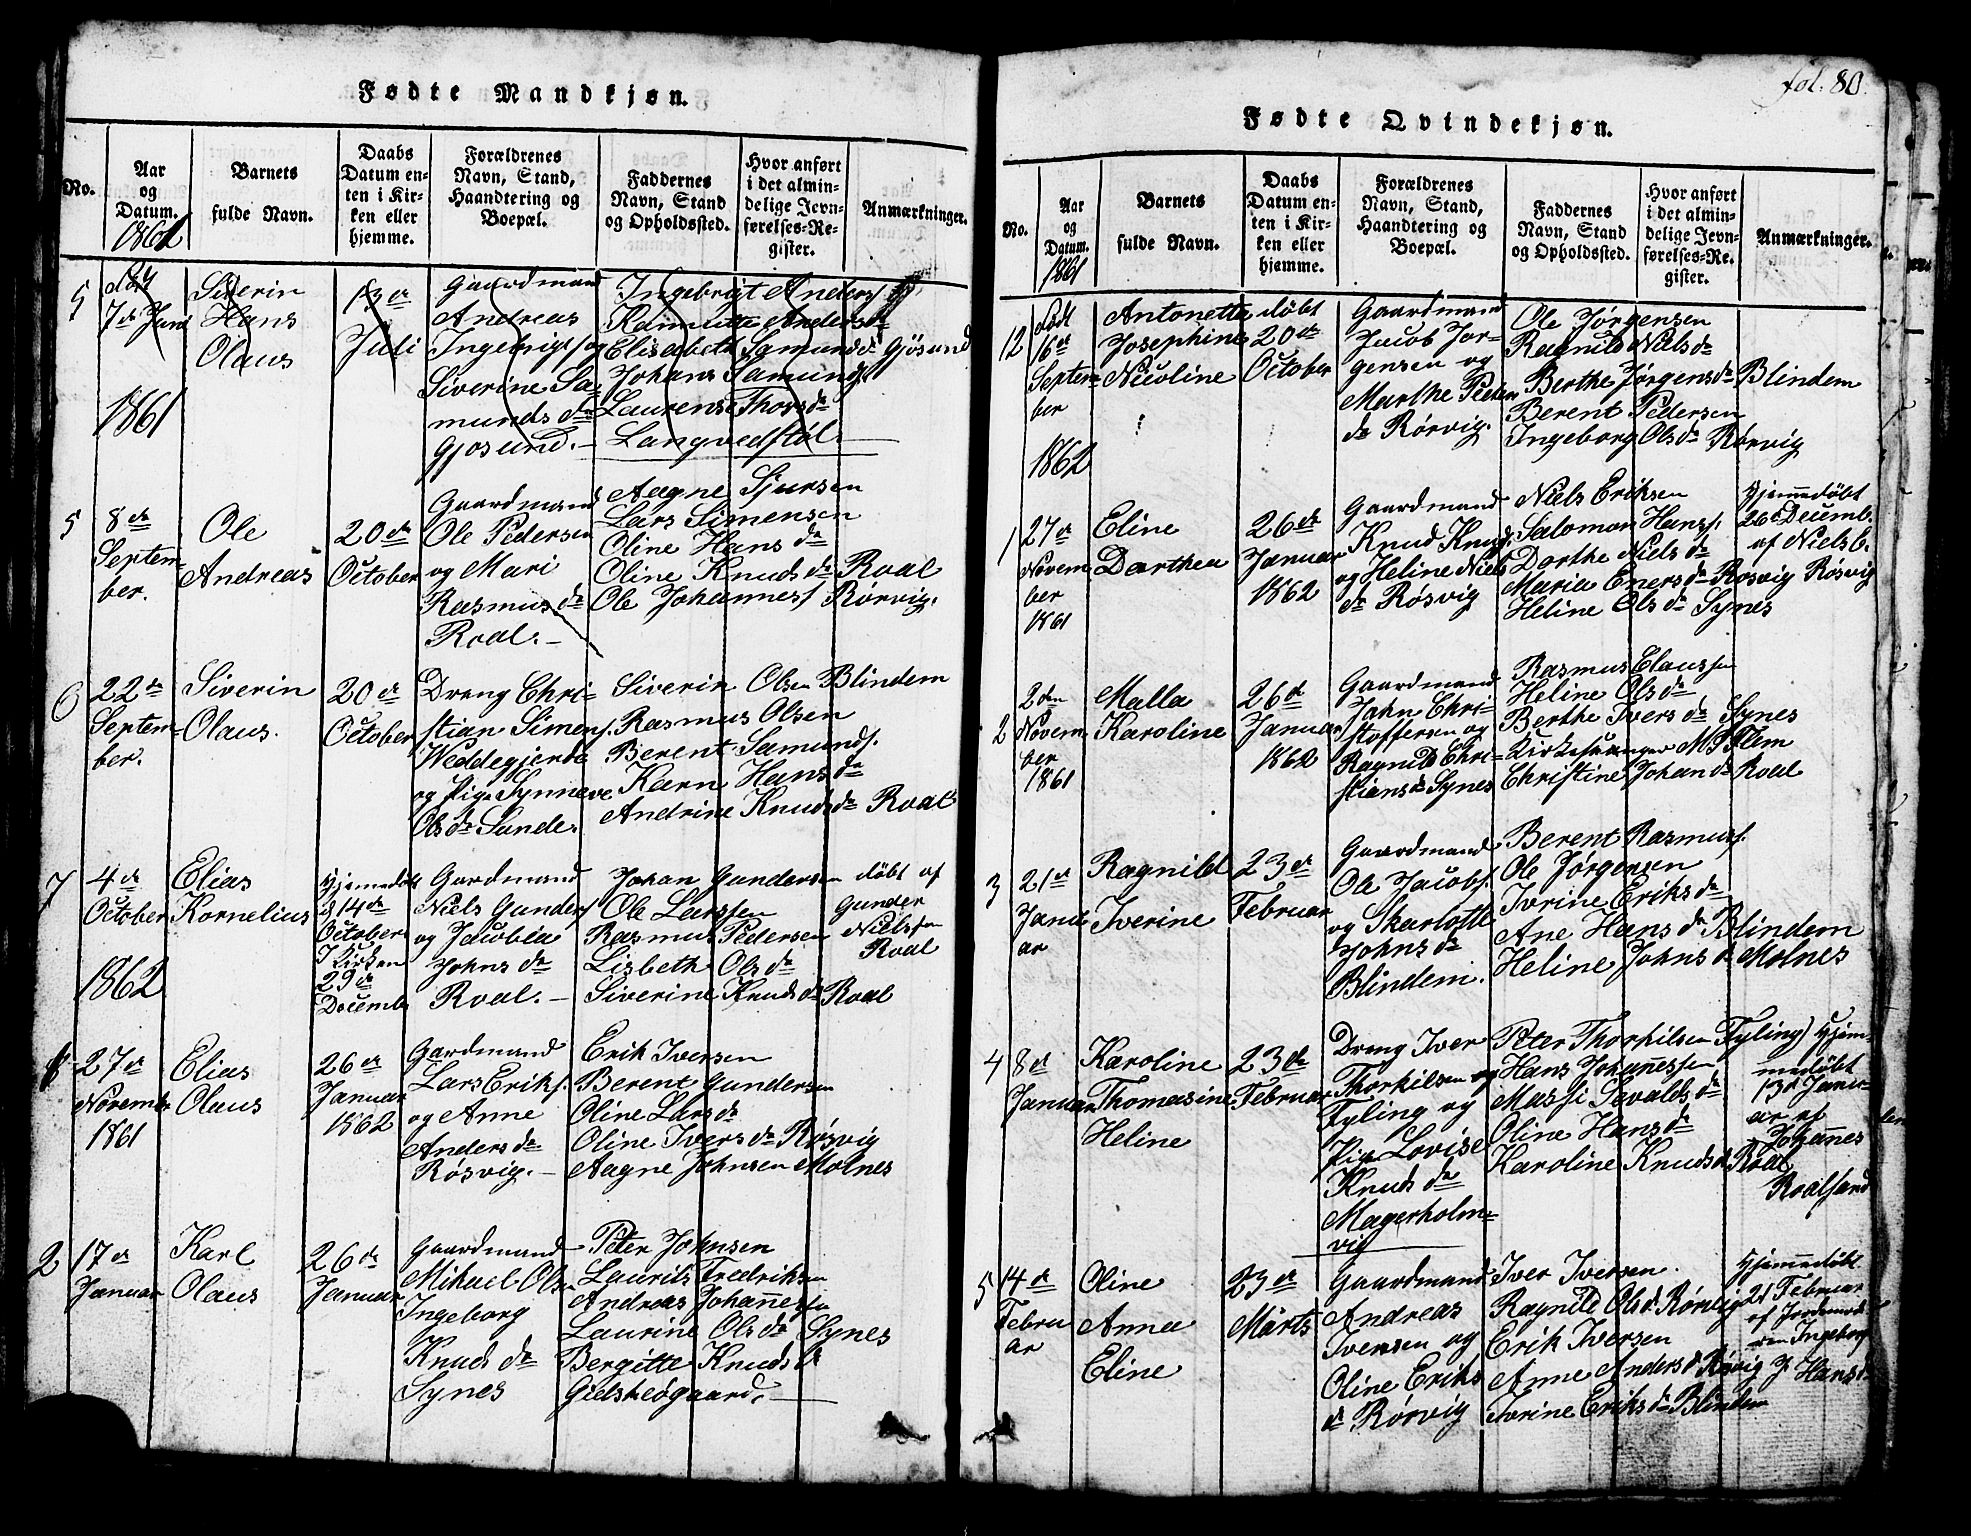 Fødte Mandkjøn.
No.
Aar
og
Datum.
1861
Barnets
fulde Navn.
Daabs
Datum en-
ten i Kir-
ken eller
hjemme.
Forældrenes
Navn, Stand,
Haandtering og
Boepæl.
Faddernes
Navn, Stand
og Opholdssted.
Hvor anført
i det almin-
delige Jevn-
førelses-Re-
gister.
Anmærkninger.
5
7de Juni
Siverin
Hans
Olaus
13de
Juli
Gaardmand
Andreas
Ingebrigts og
Siverine Sa-
munds dr
Gjøsund.
Ingebrigt Anders
Rasmine Anders dr
Elisabeth Samunds dr Gjøsund
Johans Samunds
Laurense Thors dr
Langvedstøl.
1861
5
8de
Septem-
ber.
Ole
Andreas
20de
October
Gaardmand
Ole Pedersen
og Mari
Rasmus dr
Roal.
Aagne Sjursen
Lars Simensen
Oline Hans dr
Oline Knuds dr Roal
Ole Johannes Rørvig.
6
22de
Septem-
ber.
Siverin
Olaus.
20de
October
Dreng Chri-
stian Simens.
Weddegjerde
og Pige Synneve
Ols dr Sande.
Siverin Olsen Blindem
Rasmus Olsen
Berent Samunds.
Karn Hans dr
Andrine Knuds dr Roal
7
4de
October
Elias
Kornelius
Hjemedøbt
d 14de
October
I Kirken
29de
Decemb
Gardmand
Niels Gunders
og Jacobia
Johns dr
Roal.
Johan Gundersen
Ole Larssen
Rasmus Pedersen
Lisbeth Ols dr
Siverine Knuds dr Roal
døbt af
Gunder
Nielssen
Roal
1862
27de
Novemb
1861
Elias
Olaus
26de
Januar
1862
Gardmand
Lars Eriks.
og Anne
Anders dr
Røsvig.
Erik Iversen
Berent Gundersen
Oline Lars dr
Oline Ivers dr Røsvig
Aagne Johnsen Molnes
2
17de
Januar
Karl
Olaus
26de
Januar
Gaardmand
Mikael Ols
Ingeborg
Knuds dr
Synes
Peter Johnsen
Laurits Fredriksen
Andreas Johannessen
Laurine Ols dr Synes
Bergitte Knuds dr
Gidskeøgaard.
fol. 80.
Fødte Qvindekjøn.
No.
Aar
og
Datum.
1861
Barnets
fulde Navn.
Daabs
Datum en-
ten i Kir-
ken eller
hjemme.
Forældrenes
Navn, Stand,
Haandtering og
Boepæl.
Faddernes
Navn, Stand
og Opholdssted.
Hvor anført
i det almin-
delige Jevn-
førelses-Re-
gister.
Anmærkninger.
12
født
16de
Septem-
ber
Antonetta
Josephine
Nicoline
døbt
20de
October
Gaardmand
Jacob Jor-
gensen og
Marthe Peders
dr Rørvig.
Ole Jørgensen
Ragnild Niels dr
Berthe Jørgens dr Blindem
Berent Pedersen
Ingeborg Ols dr Rørvig
1862
1
27de
Novem
ber
1861
Eline
Dorthea
26de
Januar
1862
Gaardmand
Knud Knuds
og Heline Niels
dr Røsvig
Niels Eriksen
Salomon Hans.
Dorthe Niels dr
Maria Eners dr Røsvig
Heline Ols dr Synes
Hjemmedøbt
26d Decemb.
af Niels E.
Røsvig
2
2den
Novem
ber
1861
Malla
Karoline
26d
Januar
1862
Gaardmand
John Chri-
stoffersen og
Ragnild Chri-
stians dr Synes
Rasmus Claussen
Heline Ols dr
Berthe Ivers dr Synes
Kirkesanger M. Flem
Christine Johan dr Roal
3
21de
Janu
ar
Ragnild
Iverine
23de
Februar
Gaardmand
Ole Jacobs.
og Skarlotte
Johns dr
Blindem.
Berent Rasmus.
Ole Jørgensen
Ivrine Eriks dr
Ane Hans dr Blindem
Heline Johns dr Molnes
4
8de
Januar
Karoline
Thomasine
Heline
23de
Februar
Dreng Iver
Thorkilsen og
Fyling og
Pige Lovise
Knuds dr
Magerholm-
vig
Peter Thorkilsen Fyling
Hans Johannessen
Massi Sevalds dr
Oline Hans dr
Karoline Knuds dr Roal
Hjem-
medøbt
13d Janu-
ar af
Johannes
Roalsand
5
14de
Febru
ar
Oline
Anna
Eline
23de
Märts
Gaardmand
Andreas
Iversen og
Oline Eriks
dr Rørvig
Iver Iversen.
Ragnild Ols dr Rørvig
Erik Iversen
Anne Anders dr Rørvig
Ivrine Eriks dr Blindem
Hjemmedøbt
21 Februar
af Jordemod
ren Ingeborg
J Hans dr